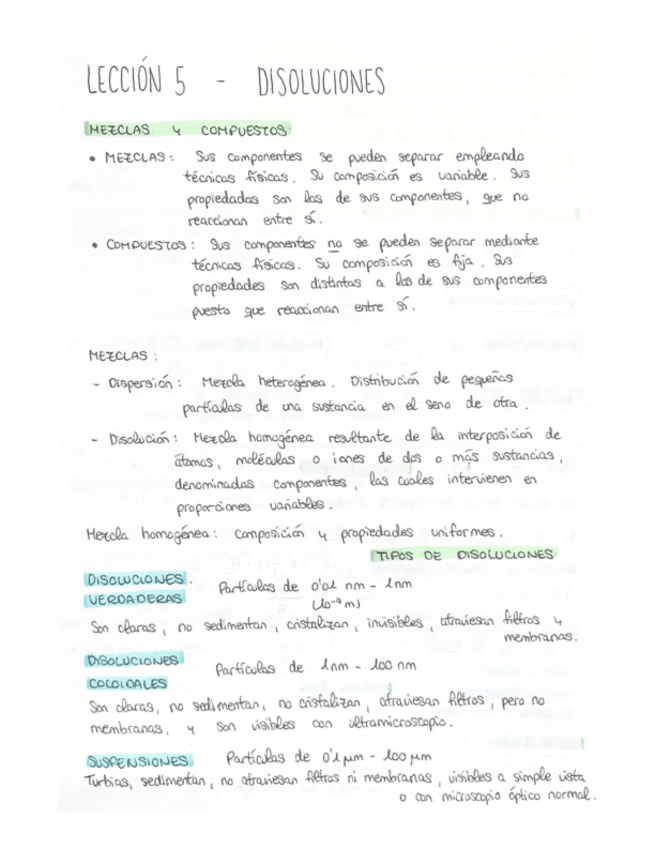 LECCIÓN 5 - DISOLUCIONES
MEZCLAS Y COMPUESTOS
• MEZCLAS: Sus componentes se pueden separar empleando
técnicas físicas. Su composición es variable. Sus
propiedades son las de sus componentes, que no
reaccionan entre sí.
• COMPUESTOS: Sus componentes no se pueden separar mediante
técnicas físicas. Su composición es fija. Sus
propiedades son distintas a las de sus componentes
puesto que reaccionan entre sí.
MEZCLAS:
- Dispersión: Mezcla heterogénea. Distribución de pequeñas
partículas de una sustancia en el seno de otra.
- Disolución: Mezcla homogénea resultante de la interposición de
átomos, moléculas o iones de dos o más sustancias,
denominadas componentes, las cuales intervienen en
proporciones variables.
Mezcla homogénea: composición y propiedades uniformes.
TIPOS DE DISOLUCIONES
DISOLUCIONES. Partículas de 0'01 nm - 1nm
VERDADERAS (10⁻⁹ m)
Son claras, no sedimentan, cristalizan, invisibles, atraviesan filtros y
membranas.
DISOLUCIONES Partículas de 1nm - 100 nm
COLOIDALES
Son claras, no sedimentan, no cristalizan, atraviesan filtros, pero no
membranas, y son visibles con ultramicroscopio.
SUSPENSIONES Partículas de 0'1 µm - 100 µm
Turbias, sedimentan, no atraviesan filtros ni membranas, visibles a simple vista
o con microscopio óptico normal.